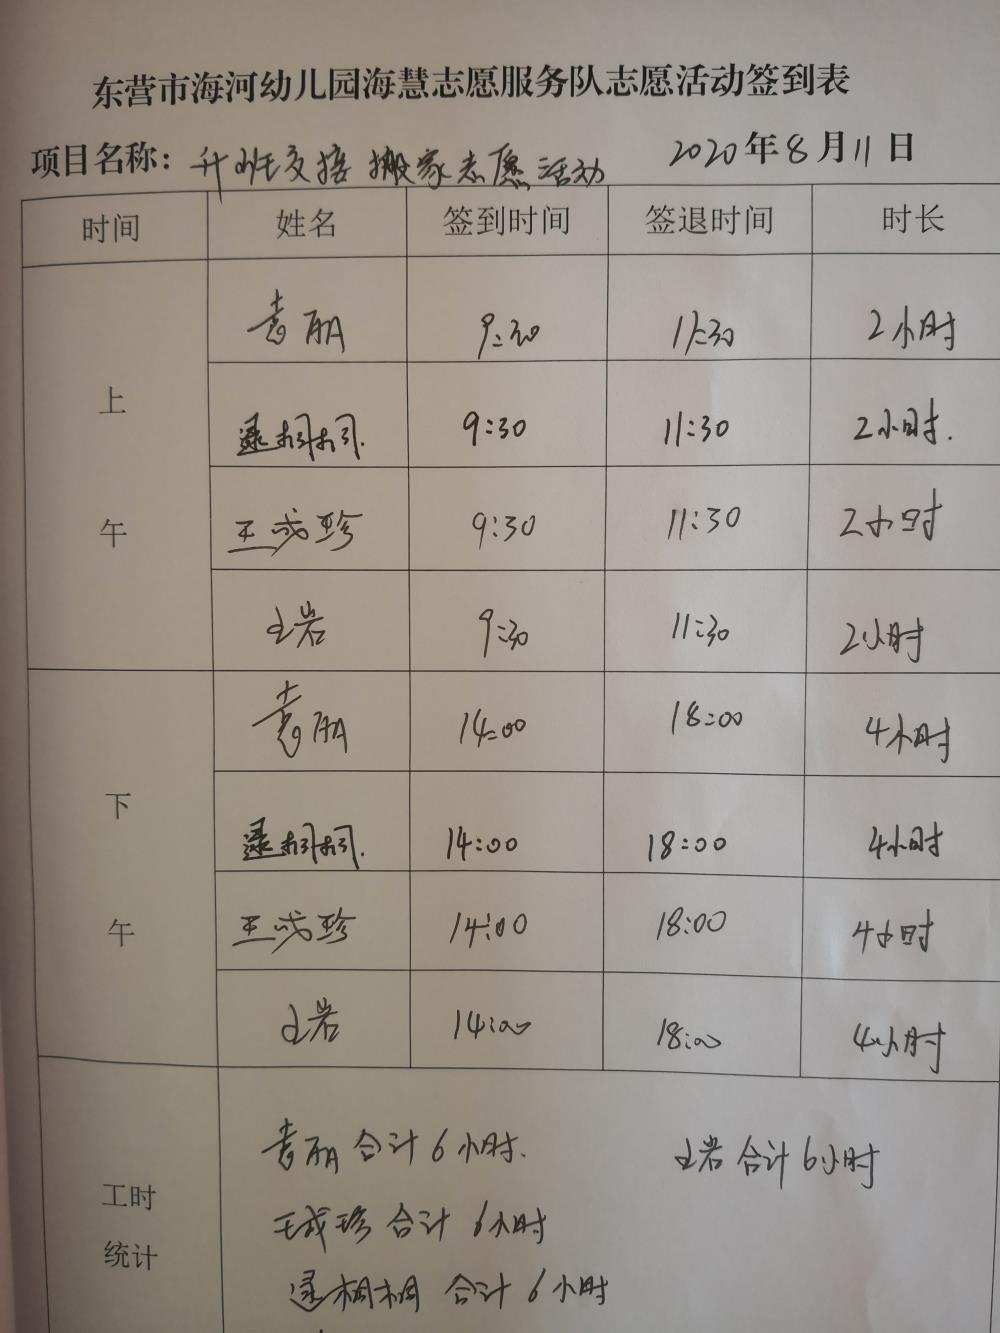 东营市海河幼儿园海慧志愿服务队志愿活动签到表
项目名称：升班交接搬家志愿活动 2020年8月11日
时间 姓名 签到时间 签退时间 时长
上午
袁丽 9:30 11:30 2小时
逯桐桐. 9:30 11:30 2小时.
王成珍 9:30 11:30 2小时
王岩 9:30 11:30 2小时
下午
袁丽 14:00 18:00 4小时
逯桐桐. 14:00 18:00 4小时
王成珍 14:00 18:00 4小时
王岩 14:00 18:00 4小时
工时统计
袁丽 合计6小时. 王岩 合计6小时
王成珍 合计6小时
逯桐桐 合计6小时